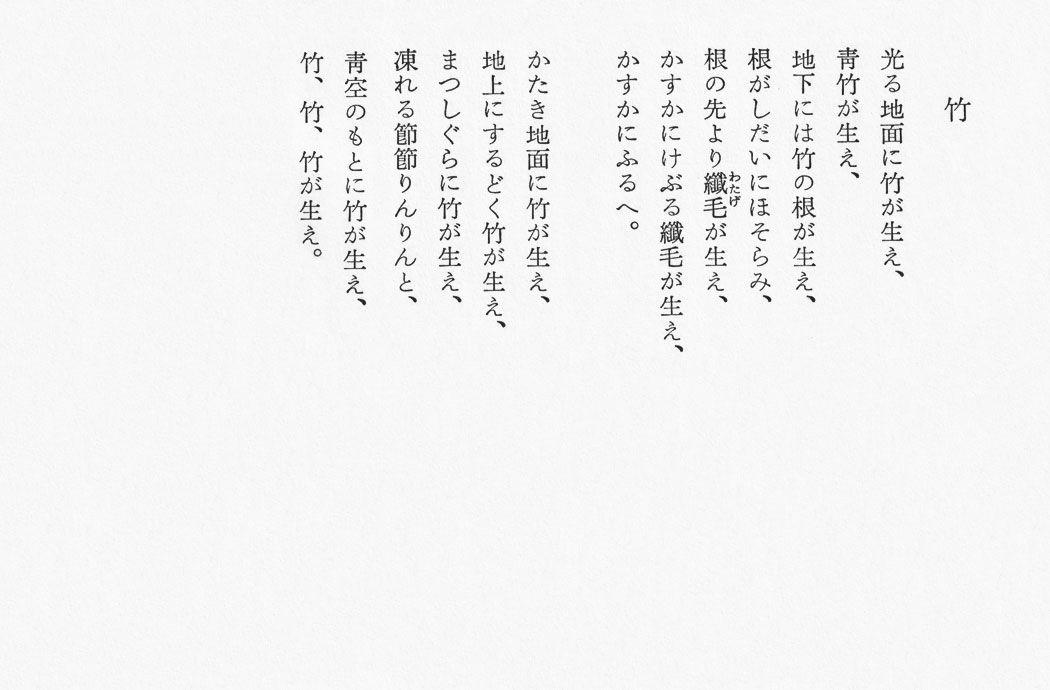 竹
光る地面に竹が生え、
靑竹が生え、
地下には竹の根が生え、
根がしだいにほそらみ、
根の先より纖毛が生え、
わたげ
かすかにけぶる纖毛が生え、
かすかにふるへ。
かたき地面に竹が生え、
地上にするどく竹が生え、
まつしぐらに竹が生え、
凍れる節節りんりんと、
靑空のもとに竹が生え、
竹、竹、竹が生え。